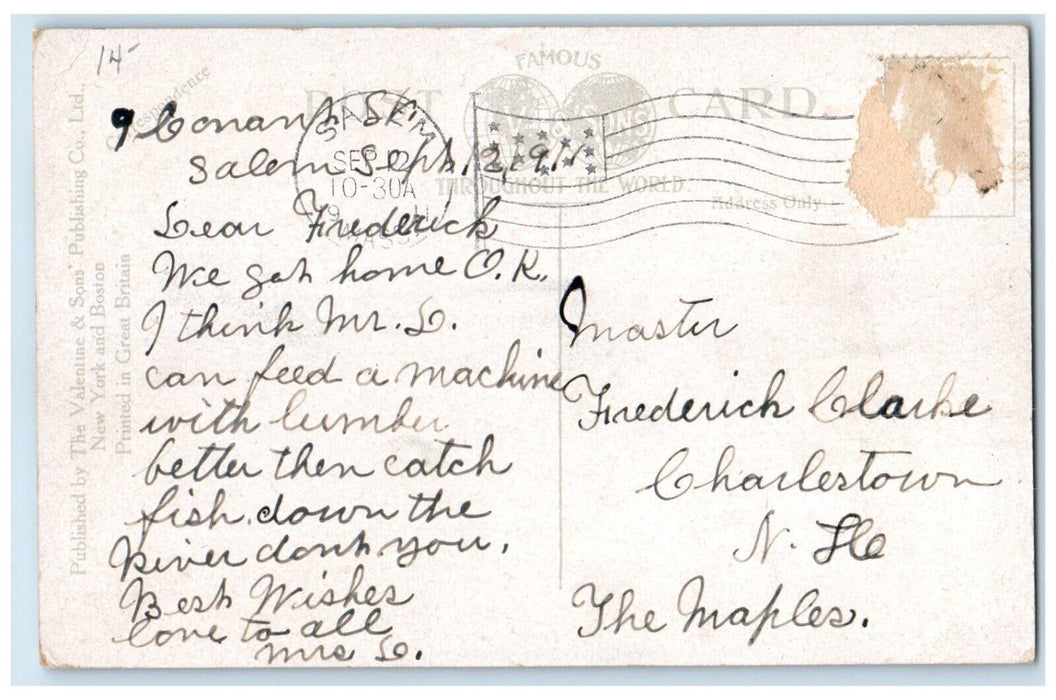 14-
Correspondence
FAMOUS
POST CARD.
THROUGHOUT THE WORLD.
Address Only
SALEM
SEP 12
10-30A
MASS.
9 Conant St.
Salem Sept. 12, 1911
Dear Frederick
We got home O.K.
I think Mr. D.
can feed a machine
with lumber
better then catch
fish down the
River dont you.
Best Wishes
love to all
Mrs D.
Master
Frederick Clarke
Charlestown
N. H
The Maples.
Published by The Valentine & Sons' Publishing Co., Ltd.,
New York and Boston
Printed in Great Britain